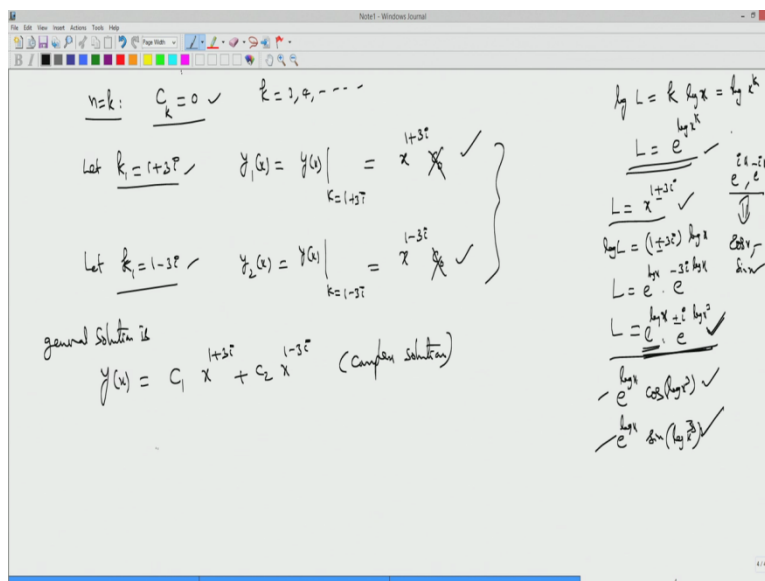 Note1 - Windows Journal
File Edit View Insert Actions Tools Help
Page Width
B I
n=k: C_k = 0 ✓ k = 3, 4, ----
Let k_1 = 1+3i ✓ y_1(x) = y(x)|_{k=1+3i} = x^{1+3i} c_0 ✓
Let k_1 = 1-3i ✓ y_2(x) = y(x)|_{k=1-3i} = x^{1-3i} c_0 ✓
general solution is
y(x) = C_1 x^{1+3i} + C_2 x^{1-3i} (complex solution)
log L = k log x = log x^k
L = e^{log x^k} ✓
L = x^{1±3i} ✓
e^{ix}, e^{-ix}
⇓
cos x, sin x
log L = (1±3i) log x
L = e^{log x} . e^{-3i log x}
L = e^{log x} . e^{±i log x^3} ✓
- e^{log x} cos(log x^3) ✓
- e^{log x} sin(log x^3) ✓